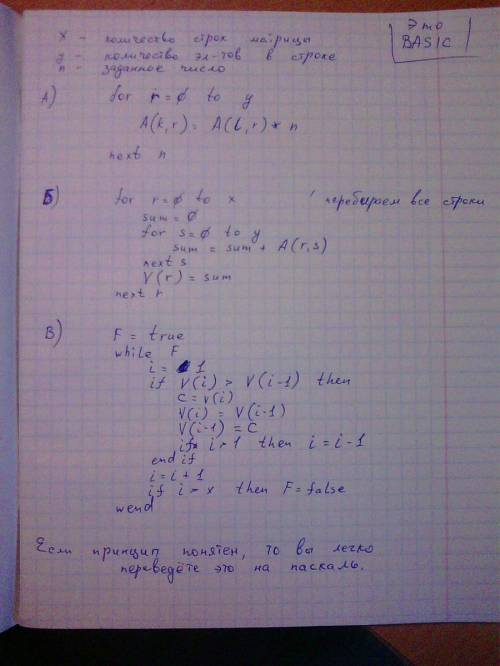 x - количество строк матрицы
y - количество эл-тов в строке
n - заданное число
Это
BASIC
А)
for r = 0 to y
A(k,r) = A(l,r) * n
next n
Б)
for r = 0 to x ' перебираем все строки
sum = 0
for s = 0 to y
sum = sum + A(r,s)
next s
V(r) = sum
next r
В)
F = true
while F
i = 1
if V(i) > V(i-1) then
C = V(i)
V(i) = V(i-1)
V(i-1) = C
if i > 1 then i = i-1
end if
i = i + 1
if i = x then F = false
wend
Если принцип понятен, то вы легко
переведёте это на паскаль.